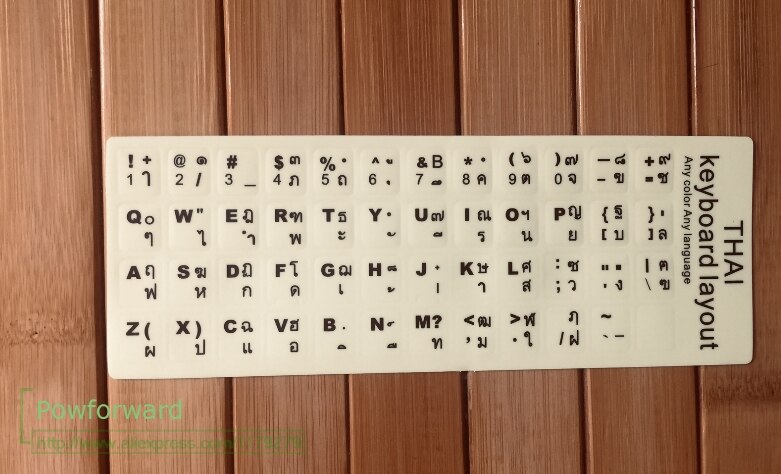 ! + @ ๑ # $ ๓ % ^ ู & B * ( ๖ ) ๗ — ๘ + ๙
1 า 2 / 3 _ 4 ภ 5 ถ 6 ุ 7 ึ 8 ค 9 ต 0 จ - ข = ช
Q ๐ W " E ฎ R ฑ T ธ Y ํ U ๗ I ณ O ฯ P ญ { ฐ } ,
ๆ ไ ำ พ ะ ั ี ร น ย [ บ ] ล
A ฤ S ฆ D ฏ F โ G ฌ H ็ J ๋ K ษ L ศ : ซ " . | ฅ
ฟ ห ก ด เ ้ ่ า ส ; ว ' ง \ ข
Z ( X ) C ฉ V ฮ B . N ์ M ? < ฒ > ฬ ฦ ~
ผ ป แ อ ิ ื ท , ม . ใ / ฝ ` –
THAI
keyboard layout
Any color Any language
Powforward